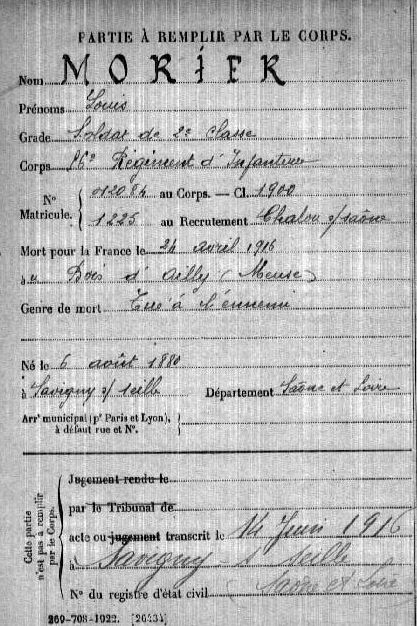 PARTIE À REMPLIR PAR LE CORPS.
Nom MORIER
Prénoms Louis
Grade Soldat de 2e classe
Corps 56e Régiment d'Infanterie
No Matricule. { 012084 au Corps. — Cl. 1900
1225 au Recrutement Chalon s/ Saône
Mort pour la France le 24 avril 1916
à u Bois d'Ailly (Meuse)
Genre de mort Tué à l'ennemi
Né le 6 août 1880
à Savigny s/ Seille Département Saône et Loire
Arrt municipal (pr Paris et Lyon), à défaut rue et No. }
Cette partie n'est pas à remplir par le Corps. {
Jugement rendu le
par le Tribunal de
acte ou jugement transcrit le 14 Juin 1916
à Savigny s Seille
No du registre d'état civil (Saône et Loire)
269-708-1922. [26434]